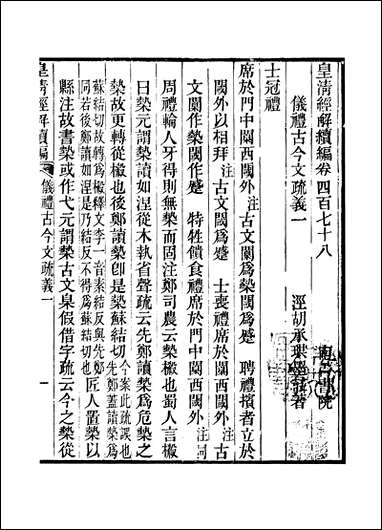 皇清經解續編卷四百七十八
儀禮古今文疏義一
涇胡承珙墨莊著
士冠禮
席於門中闑西閾外注古文闑為槷閾為蹙 聘禮擯者立於
閾外以相拜注古文閾為蹙 士喪禮席於闑西閾外注古
文闑作槷閾作蹙 特牲饋食禮席於門中闑西閾外注同
周禮輪人牙得則無槷而固注鄭司農云槷榝也蜀人言榝
曰槷元謂槷讀如涅從木執省聲疏云先鄭讀槷為危槷之
槷故更轉從榝也後鄭讀槷卽是槷蘇結切今案此疏誤也先鄭蓋讀槷為
蘇結切故轉為榝釋文李一音素結反與先鄭
同若後鄭讀如涅是乃結反不得為蘇結切也匠人置槷以
縣注故書槷或作弋元謂槷古文臬假借字疏云今之槷從
皇清經解續編
儀禮古今文疏義一
一